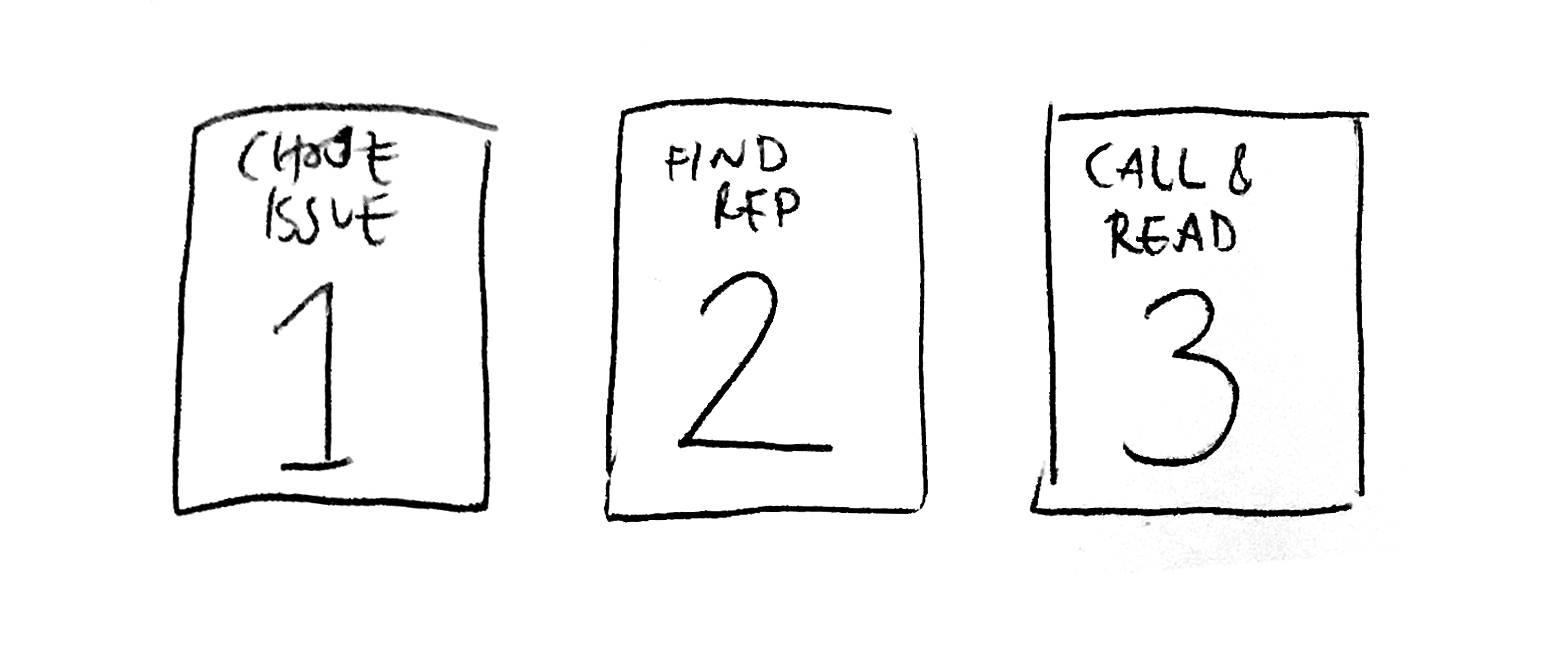 CHOOSE
ISSUE
1
FIND
REP
2
CALL &
READ
3